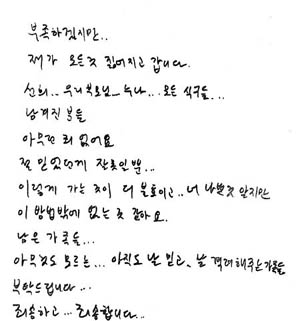 부족하겠지만..
제가 모든것 짊어지고 갑니다.
신희... 우리 부모님... 누나... 모든 식구들...
남겨진 분들
아무런 죄 없어요
전 믿었던게 잘못일뿐...
이렇게 가는것이 더 불효이고.. 더 나쁜것 알지만
이 방법밖에 없는 것 같아요.
남은 가족들...
아무것도 모르는... 아직도 날 믿고, 날 격려해주는 가족들
부탁드립니다...
죄송하고... 죄송합니다...